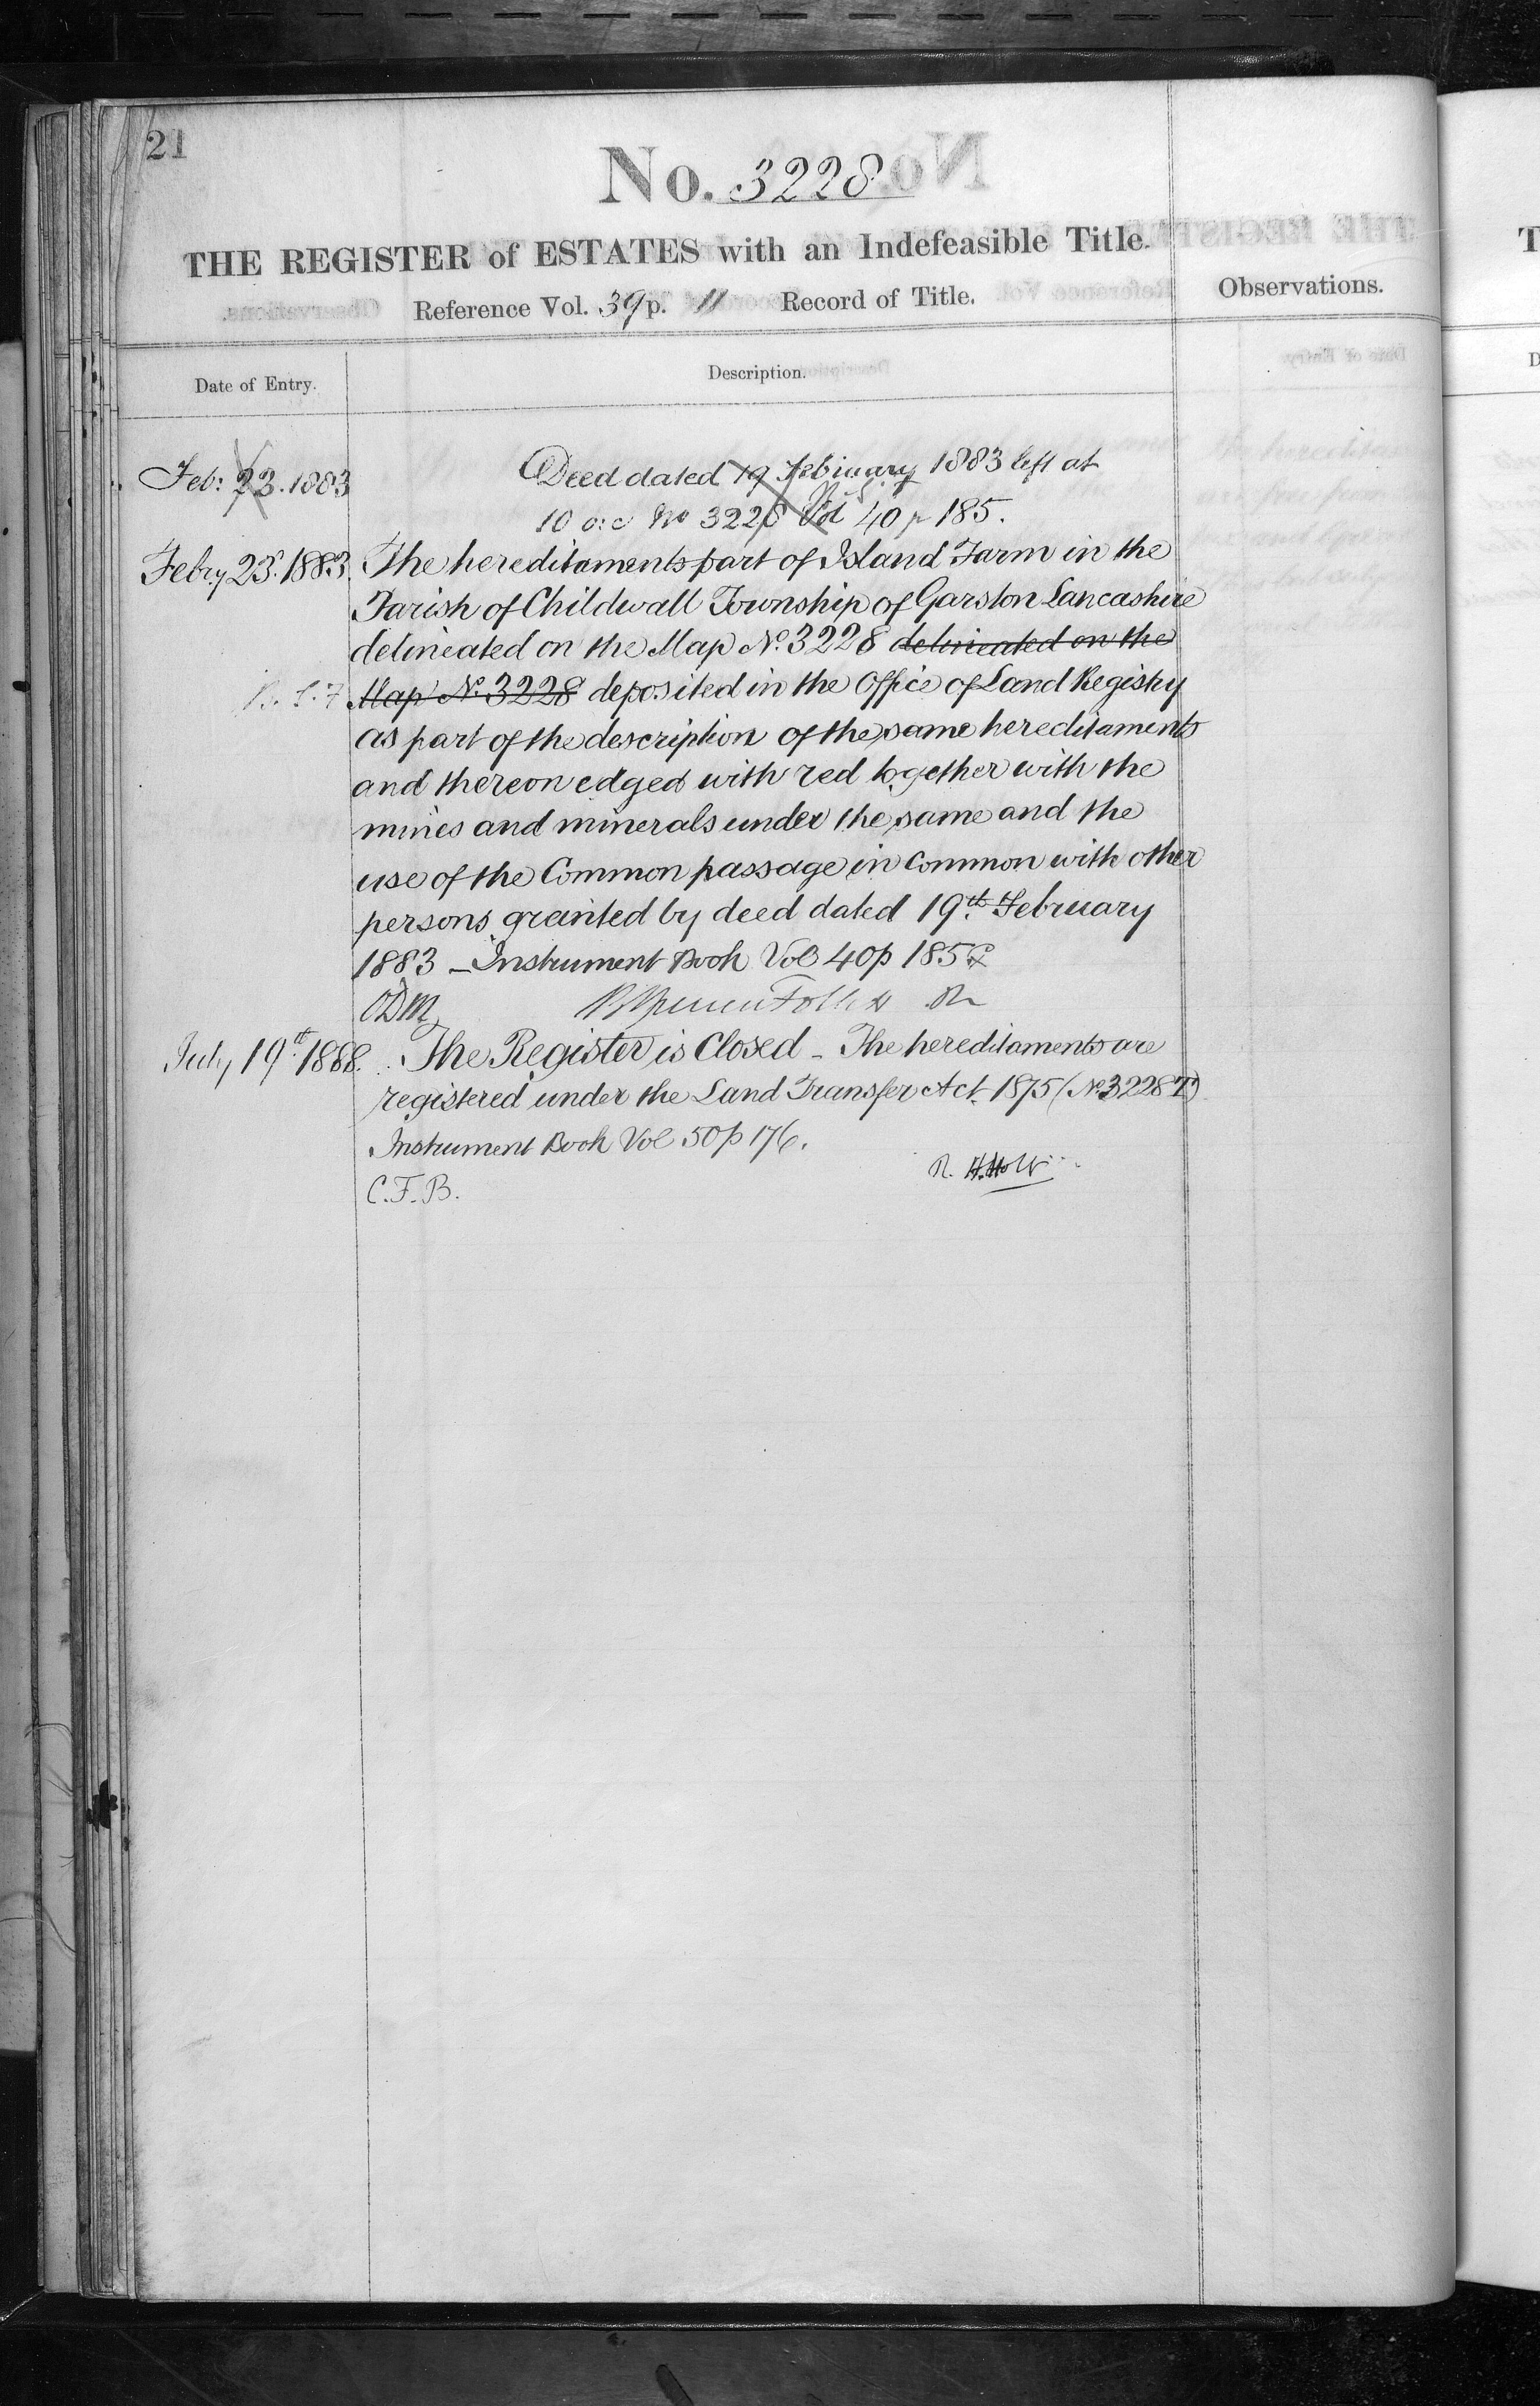 21
No. 3228
THE REGISTER of ESTATES with an Indefeasible Title.
Reference Vol. 39 p. 11 Record of Title.
Observations.
Date of Entry.
Description.
Feb: 23. 1883
Deed dated 19 February 1883 left at
10 o.c No 3228 Vol 40 p 185.
Febry 23. 1883.
The hereditaments part of Island Farm in the
Parish of Childwall Township of Garston Lancashire
delineated on the Map No. 3228 delineated on the
Map No. 3228 deposited in the Office of Land Registry
as part of the description of the same hereditaments
and thereon edged with red together with the
mines and minerals under the same and the
use of the Common passage in common with other
persons granted by deed dated 19th February
1883 – Instrument Book Vol 40 p 185
ODM
July 19th 1888.
The Register is Closed – The hereditaments are
registered under the Land Transfer Act 1875 (No 3228 T)
Instrument Book Vol 50 p 176.
R. H. Holt
C.F.B.